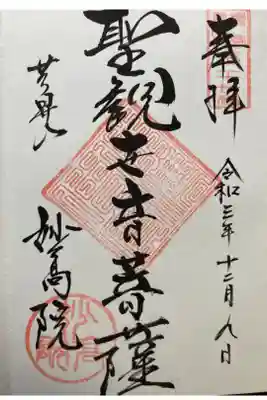 奉拝
令和三年十二月九日
聖観世音菩薩
妙高院